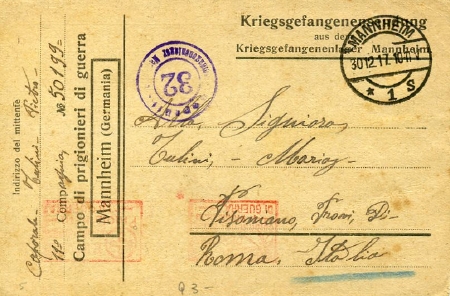 Kriegsgefangenensendung
aus dem
Kriegsgefangenenlager Mannheim.
MANNHEIM
30.12.17. 10-11 V
* 1 S
32
Indirizzo del mittente
Caporale Tulini Pietro
11a Compagnia No 50199
Campo di prigionieri di guerra
Mannheim (Germania)
Signora
Tulini, - Maria
Roma. Italia
93-